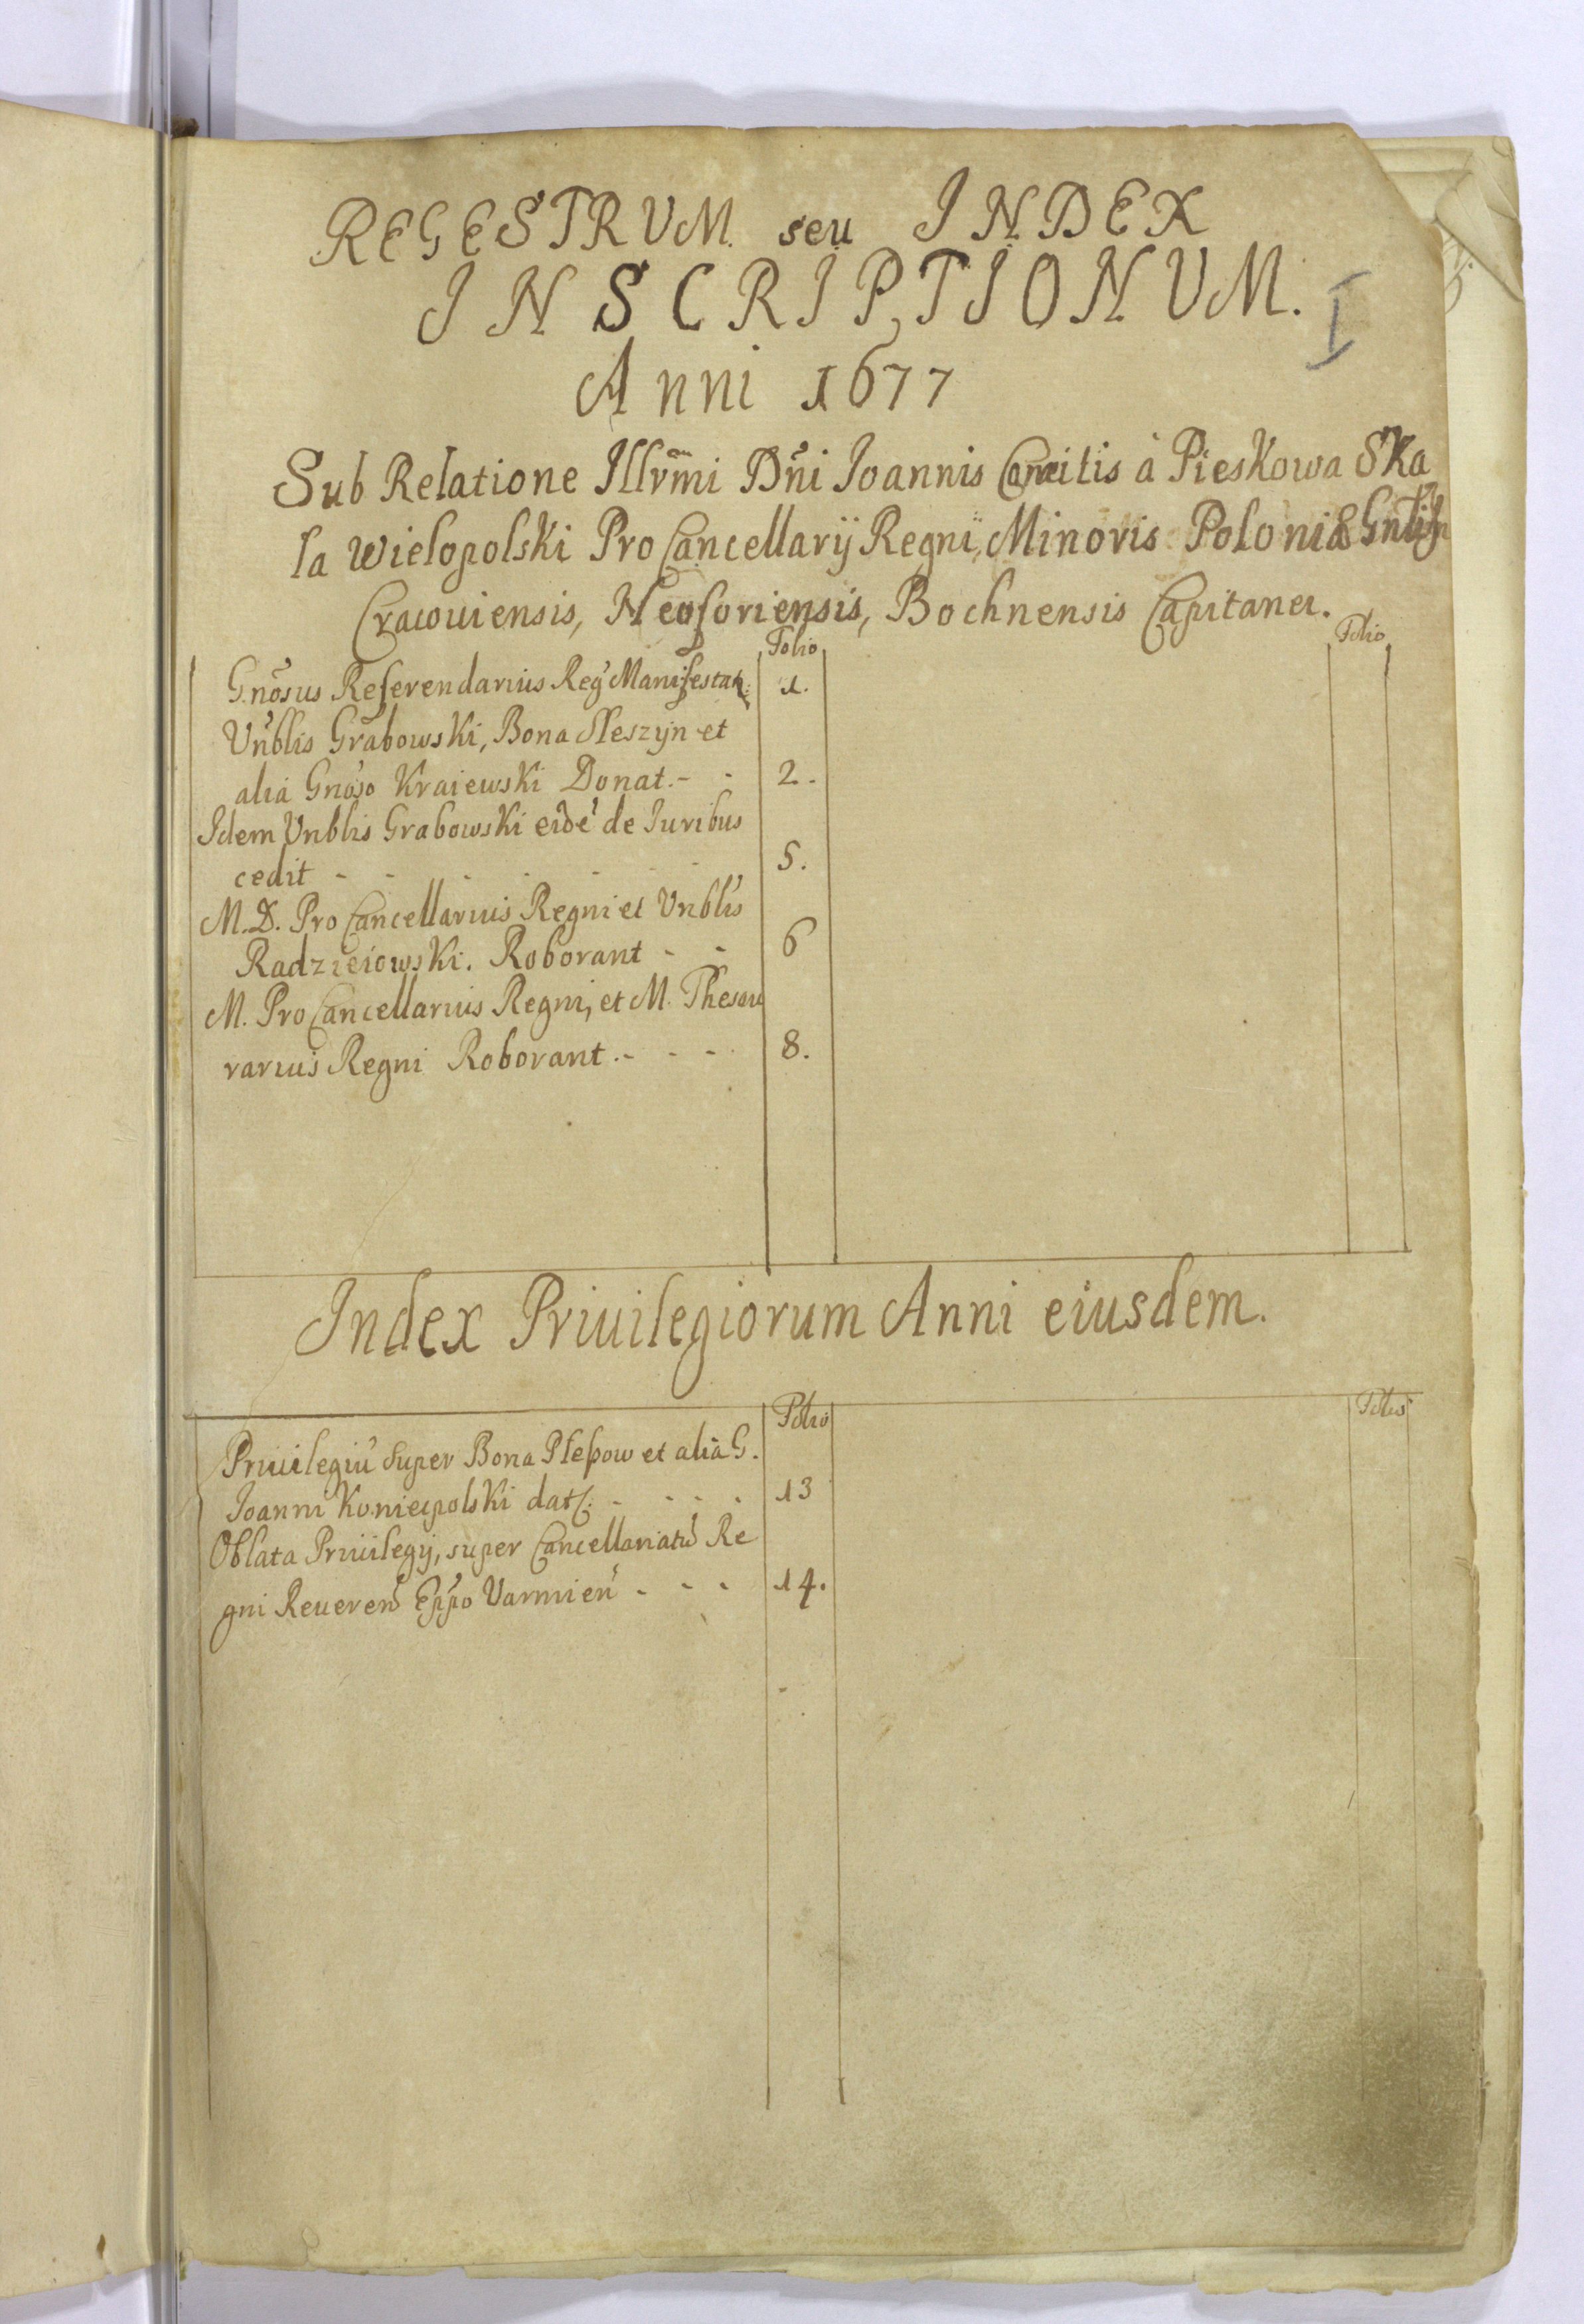 REGESTRUM. seu INDEX
INSCRIPTIONUM.
I
Anni 1677
Sub Relatione Illrm̃i Dñi Joannis Comitis à Pieskowa Ska
la Wielopolski Pro Cancellarij Regni, Minoris Poloniæ Gnlis
Cracouiensis, Neoforiensis, Bochnensis Capitanei.
Folio
Folio
Gnõsus Referendarius Reg Manifestat. 1.
Vñblis Grabowski, Bona Sleszyn et
alia Gnõso Kraiewski Donat. - - 2.
Idem Vnblis Grabowski eidé de Iuribus
cedit - - - - - - 5.
M.D. Pro Cancellarius Regni et Vnblis
Radzieiowski. Roborant - - 6
M. Pro Cancellarius Regni, et M. Thesau
rarius Regni Roborant. - - - 8.
Index Priuilegiorum Anni eiusdem.
Folio
Folio
Priuilegiũ super Bona Pleßow et alia G.
Joanni Koniecpolski dat. - - - - 13
Oblata Priuilegij, super Cancellariatũ Re
gni Reueren̄ Ep̃po Varmień - - - 14.